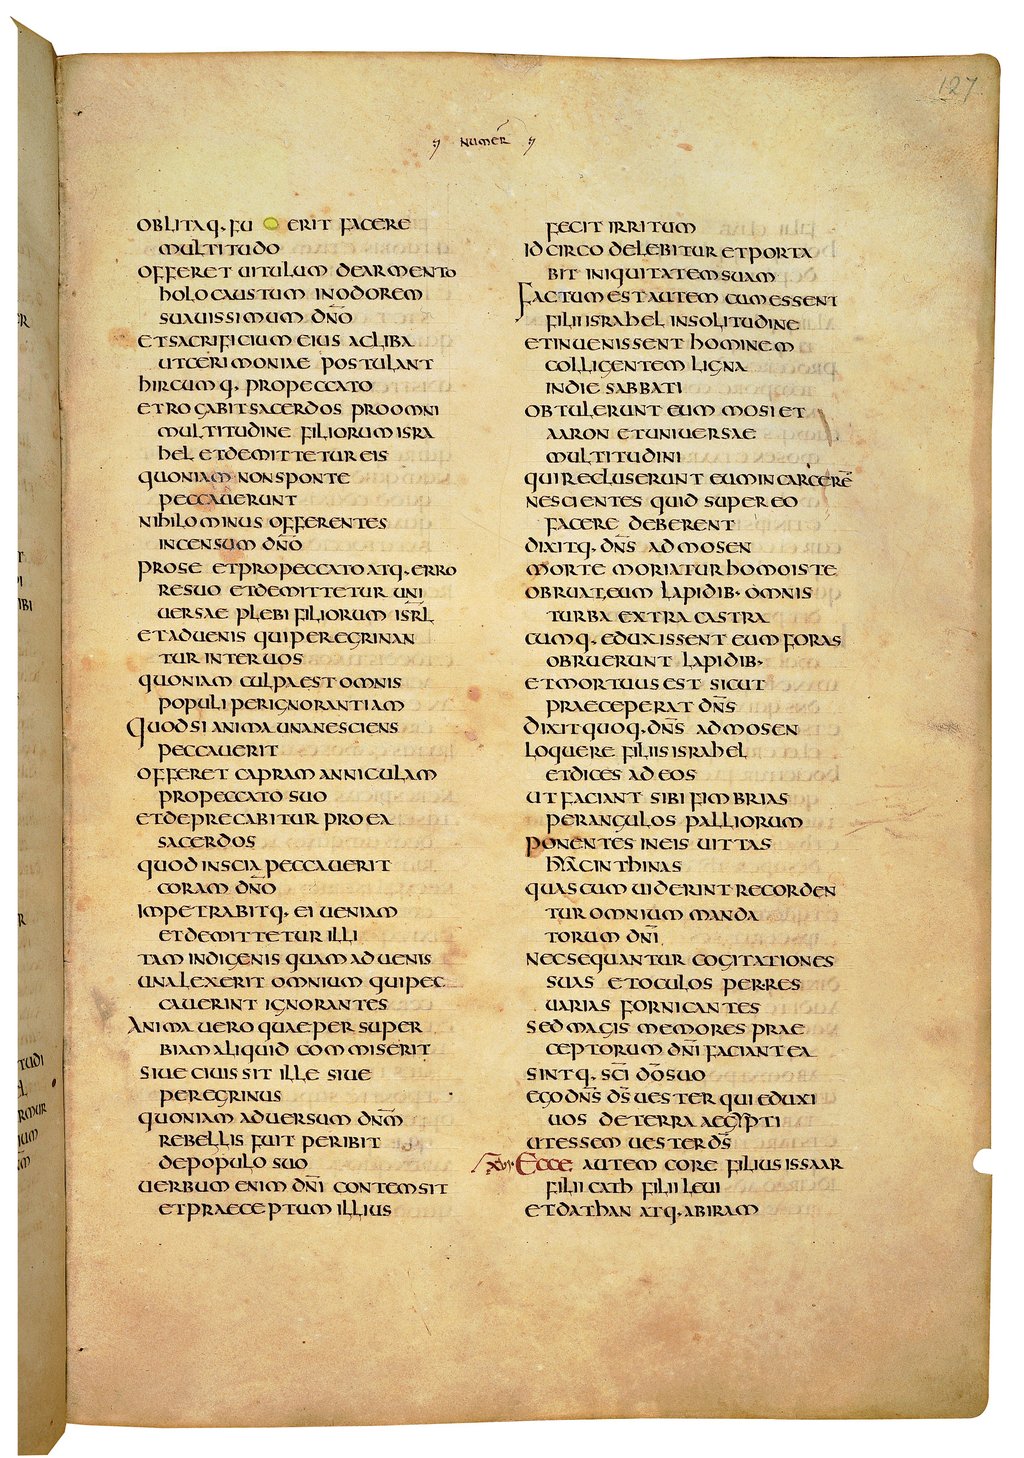 127
NUMER
OBLITAQ· FU ERIT FACERE
MULTITUDO
OFFERET UITULUM DEARMENTO
HOLOCAUSTUM INODOREM
SUAUISSIMUM DÑO
ETSACRIFICIUM EIUS ACLIBA
UTCERIMONIAE POSTULANT
HIRCUMQ· PROPECCATO
ETROGABITSACERDOS PROOMNI
MULTITUDINE FILIORUMISRA
HEL ETDEMITTETUREIS
QUONIAM NONSPONTE
PECCAUERUNT
NIHILOMINUS OFFERENTES
INCENSUM DÑO
PROSE ETPROPECCATOATQ· ERRO
RESUO ETDEMITTETUR UNI
UERSAE PLEBI FILIORUM ISRL̄
ETADUENIS QUIPEREGRINAN
TUR INTERUOS
QUONIAM CULPAEST OMNIS
POPULI PERIGNORANTIAM
QUODSI ANIMA UNANESCIENS
PECCAUERIT
OFFERET CAPRAM ANNICULAM
PROPECCATO SUO
ETDEPRECABITUR PROEA
SACERDOS
QUOD INSCIA PECCAUERIT
CORAM DÑO
IMPETRABITQ· EI UENIAM
ETDEMITTETUR ILLI
TAM INDIGENIS QUAM ADUENIS
UNALEXERIT OMNIUM QUIPEC
CAUERINT IGNORANTES
ANIMA UERO QUAEPER SUPER
BIAM ALIQUID COMMISERIT
SIUE CIUIS SIT ILLE SIUE
PEREGRINUS
QUONIAM ADUERSUM DÑM
REBELLIS FUIT PERIBIT
DEPOPULO SUO
UERBUM ENIM DÑI CONTEMSIT
ETPRAECEPTUM ILLIUS
FECIT IRRITUM
IDCIRCO DELEBITUR ETPORTA
BIT INIQUITATEM SUAM
FACTUM EST AUTEM CUM ESSENT
FILII ISRAHEL INSOLITUDINE
ETINUENISSENT HOMINEM
COLLIGENTEM LIGNA
INDIE SABBATI
OBTULERUNT EUM MOSI ET
AARON ETUNIUERSAE
MULTITUDINI
QUI RECLUSERUNT EUM IN CARCERĒ
NESCIENTES QUID SUPER EO
FACERE DEBERENT
DIXITQ· DÑS AD MOSEN
MORTE MORIATUR HOMO ISTE
OBRUAT EUM LAPIDIB· OMNIS
TURBA EXTRA CASTRA
CUMQ· EDUXISSENT EUM FORAS
OBRUERUNT LAPIDIB·
ETMORTUUS EST SICUT
PRAECEPERAT DÑS
DIXITQUOQ· DÑS ADMOSEN
LOQUERE FILIIS ISRAHEL
ETDICES AD EOS
UT FACIANT SIBI FIMBRIAS
PERANGULOS PALLIORUM
PONENTES INEIS UITTAS
HYACINTHINAS
QUAS CUM UIDERINT RECORDEN
TUR OMNIUM MANDA
TORUM DÑI
NECSEQUANTUR COGITATIONES
SUAS ETOCULOS PERRES
UARIAS FORNICANTES
SED MAGIS MEMORES PRAE
CEPTORUM DÑI FACIANT EA
SINTQ· SCĪ DŌSUO
EGO DÑS DS̄ UESTER QUI EDUXI
UOS DETERRA AEGYPTI
UTESSEM UESTER DS̄
XVI· ECCE AUTEM CORE FILIUS ISSAAR
FILII CATH FILII LEUI
ETDATHAN ATQ· ABIRAM